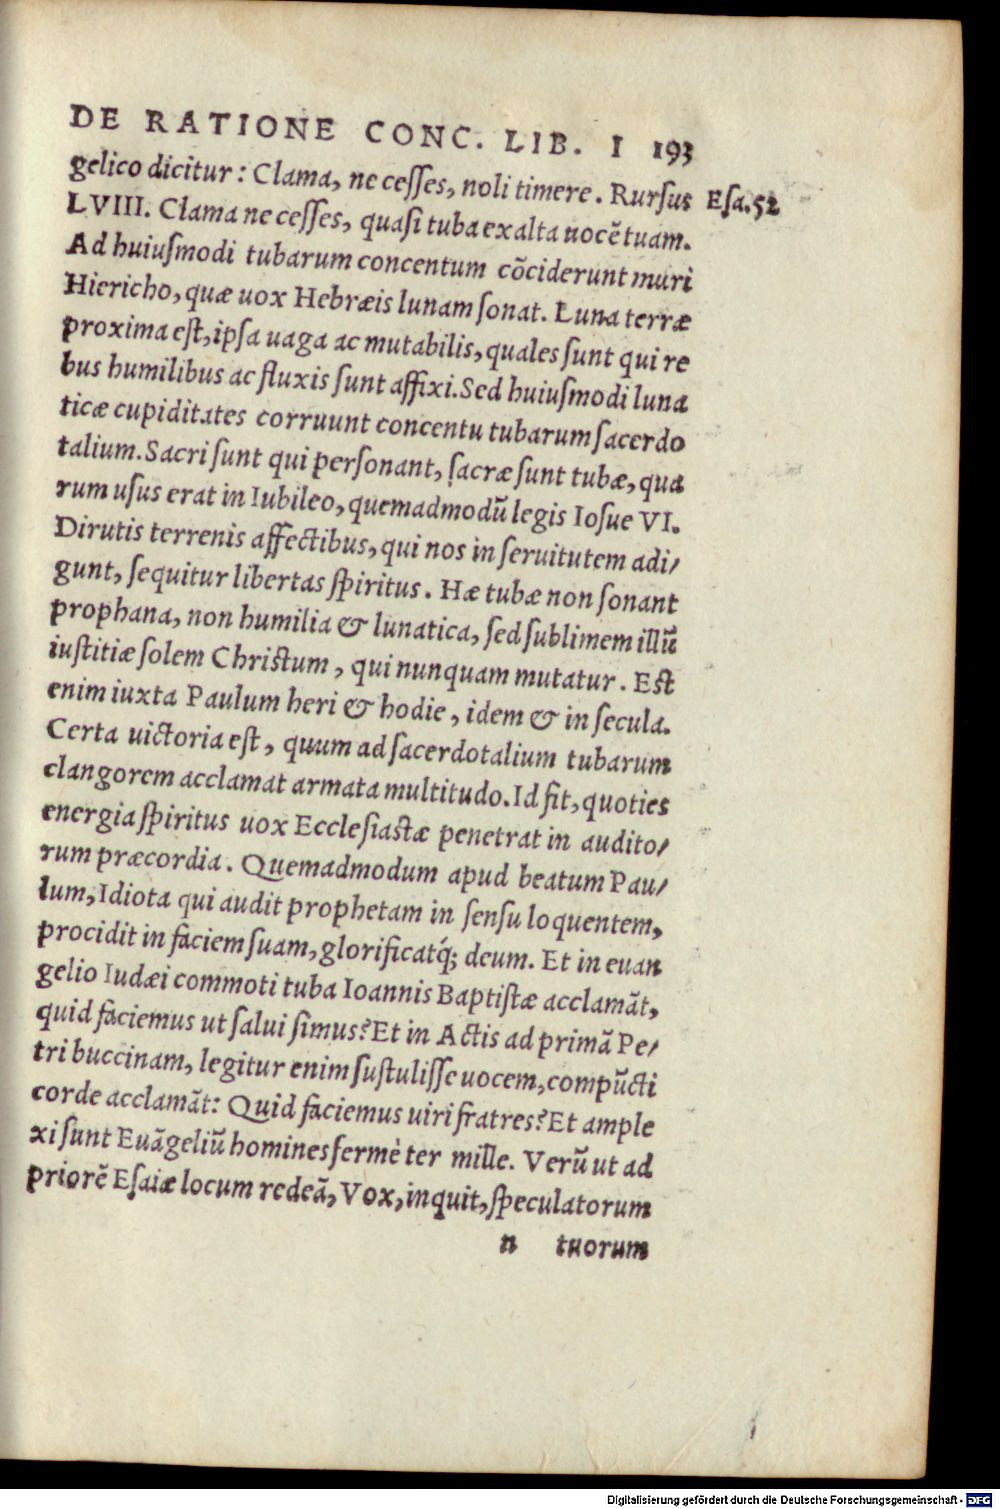 DE RATIONE CONC. LIB. I 193
gelico dicitur: Clama, ne cesses, noli timere. Rursus Esa.52
LVIII. Clama ne cesses, quasi tuba exalta uocē tuam.
Ad huiusmodi tubarum concentum cōciderunt muri
Hiericho, quæ uox Hebræis lunam sonat. Luna terræ
proxima est, ipsa uaga ac mutabilis, quales sunt qui re
bus humilibus ac fluxis sunt affixi. Sed huiusmodi luna
ticæ cupiditates corruunt concentu tubarum sacerdo
talium. Sacri sunt qui personant, sacræ sunt tubæ, qua
rum usus erat in Iubileo, quemadmodū legis Iosue VI.
Dirutis terrenis affectibus, qui nos in seruitutem adi/
gunt, sequitur libertas spiritus. Hæ tubæ non sonant
prophana, non humilia & lunatica, sed sublimem illū
iustitiæ solem Christum, qui nunquam mutatur. Est
enim iuxta Paulum heri & hodie, idem & in secula.
Certa uictoria est, quum ad sacerdotalium tubarum
clangorem acclamat armata multitudo. Id fit, quoties
energia spiritus uox Ecclesiastæ penetrat in audito/
rum præcordia. Quemadmodum apud beatum Pau/
lum, Idiota qui audit prophetam in sensu loquentem,
procidit in faciem suam, glorificatq́; deum. Et in euan
gelio Iudæi commoti tuba Ioannis Baptistæ acclamāt,
quid faciemus ut salui simus? Et in Actis ad primā Pe/
tri buccinam, legitur enim sustulisse uocem, compūcti
corde acclamāt: Quid faciemus uiri fratres? Et ample
xi sunt Euāgeliū homines fermè ter mille. Verū ut ad
priorē Esaiæ locum redeā, Vox, inquit, speculatorum
n tuorum
Digitalisierung gefördert durch die Deutsche Forschungsgemeinschaft - DFG